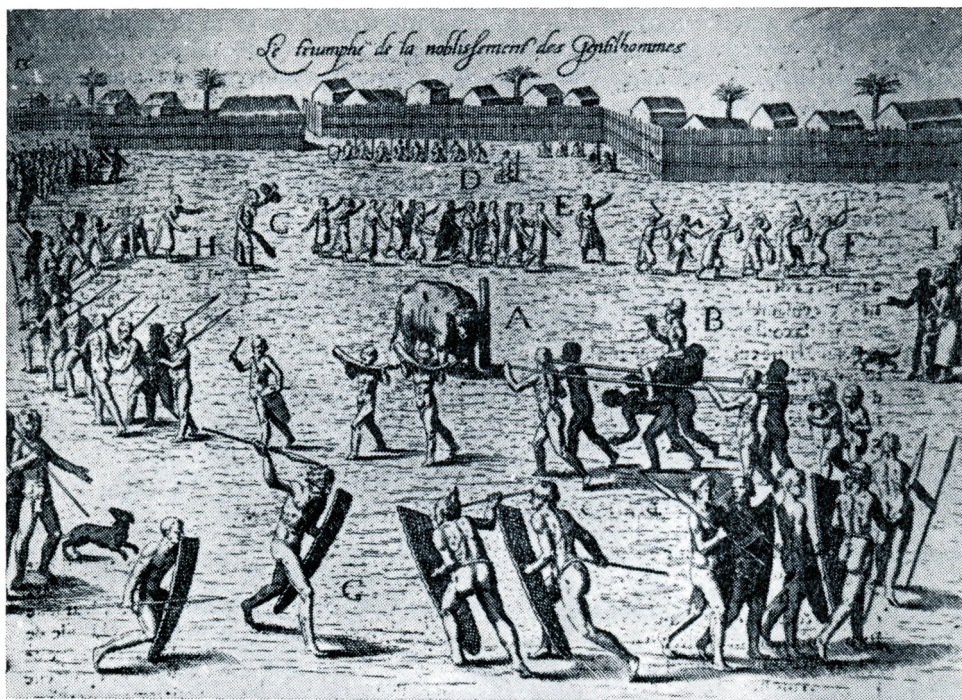 Le triumphe de la noblissement des Gentilhommes
15
D
E
G
H
F
I
A
B
G